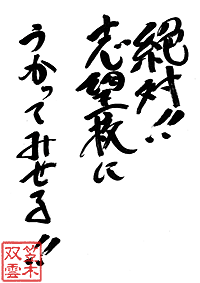 絶対!!
志望校に
うかってみせる!!
双雲